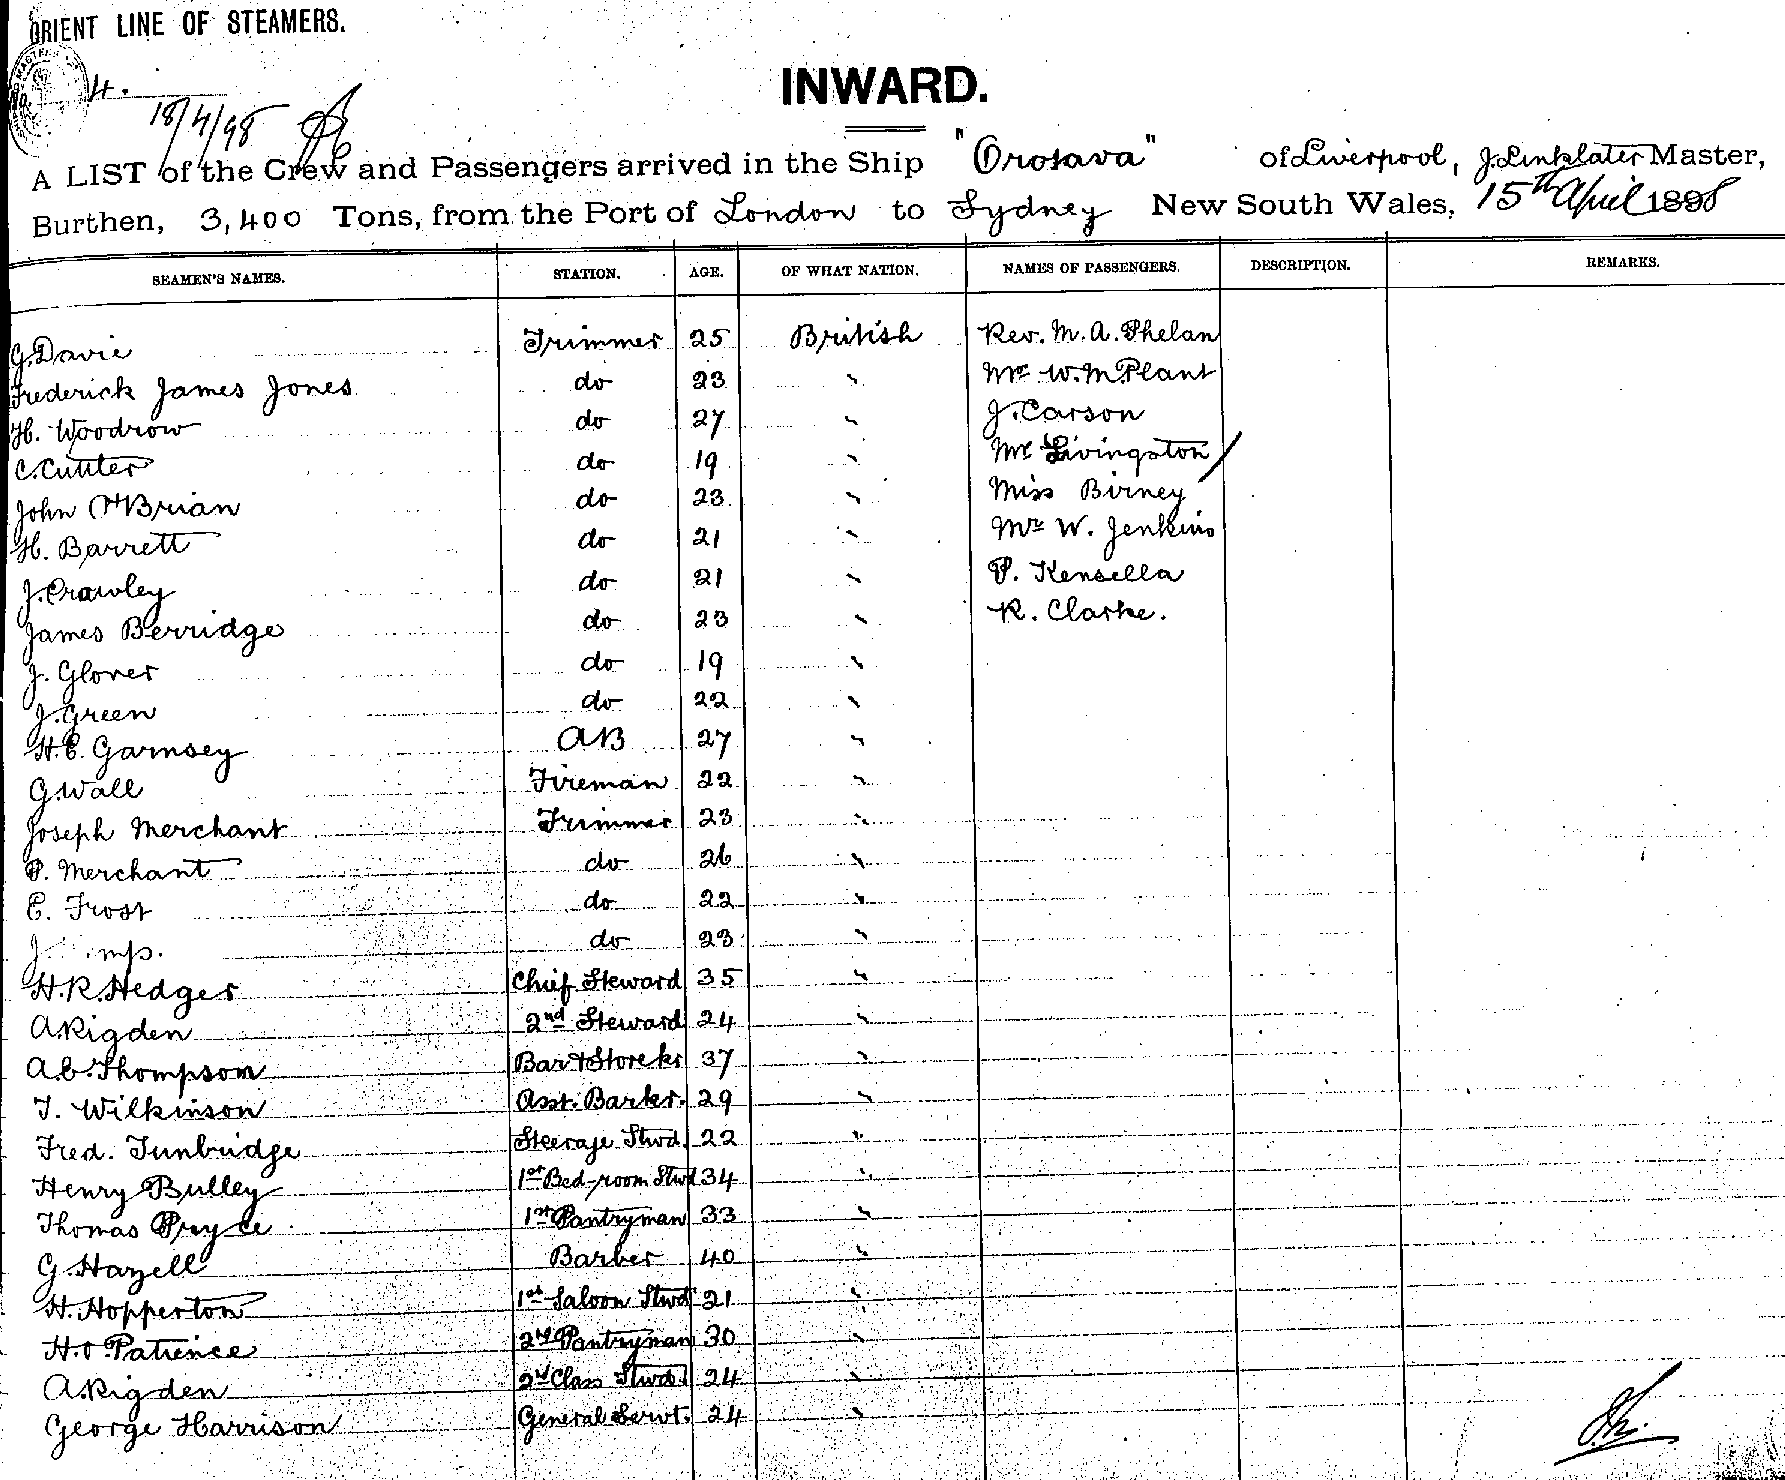 ORIENT LINE OF STEAMERS.
4.
18/4/98
INWARD.
A LIST of the Crew and Passengers arrived in the Ship "Orotava" of Liverpool, J. Linklater Master,
Burthen, 3,400 Tons, from the Port of London to Sydney New South Wales, 15th April 1898
SEAMEN'S NAMES. STATION. AGE. OF WHAT NATION. NAMES OF PASSENGERS. DESCRIPTION. REMARKS.
G. Davie Trimmer 25 British Rev. M. A. Phelan
Frederick James Jones do 23 " Mr W. M. Plant
H. Woodrow do 27 " J. Carson
C. Cutter do 19 " Mr Livingston
John O'Brian do 23 " Miss Birney
H. Barrett do 21 " Mr W. Jenkins
J. Crawley do 21 " P. Kensella
James Berridge do 23 " R. Clarke.
J. Glover do 19 "
J. Green do 22 "
H. E. Garnsey AB 27 "
G. Wall Fireman 22 "
Joseph Merchant Trimmer 23 "
P. Merchant do 26 "
E. Frost do 22 "
J. do 23 "
H. R. Hedger Chief Steward 35 "
A. Rigden 2nd Steward 24 "
A. C. Thompson Bar & Storekr 37 "
T. Wilkinson Asst. Barkr. 29 "
Fred. Tunbridge Steerage Stwd 22 "
Henry Bulley 1st Bed-room Stwd 34 "
Thomas Pryce 1st Pantryman 33 "
G. Hazell Barber 40 "
H. Hopperton 1st Saloon Stwd 21 "
H. O. Patience 2nd Pantryman 30 "
A. Rigden 2nd Class Stwd 24 "
George Harrison General Servt. 24 "